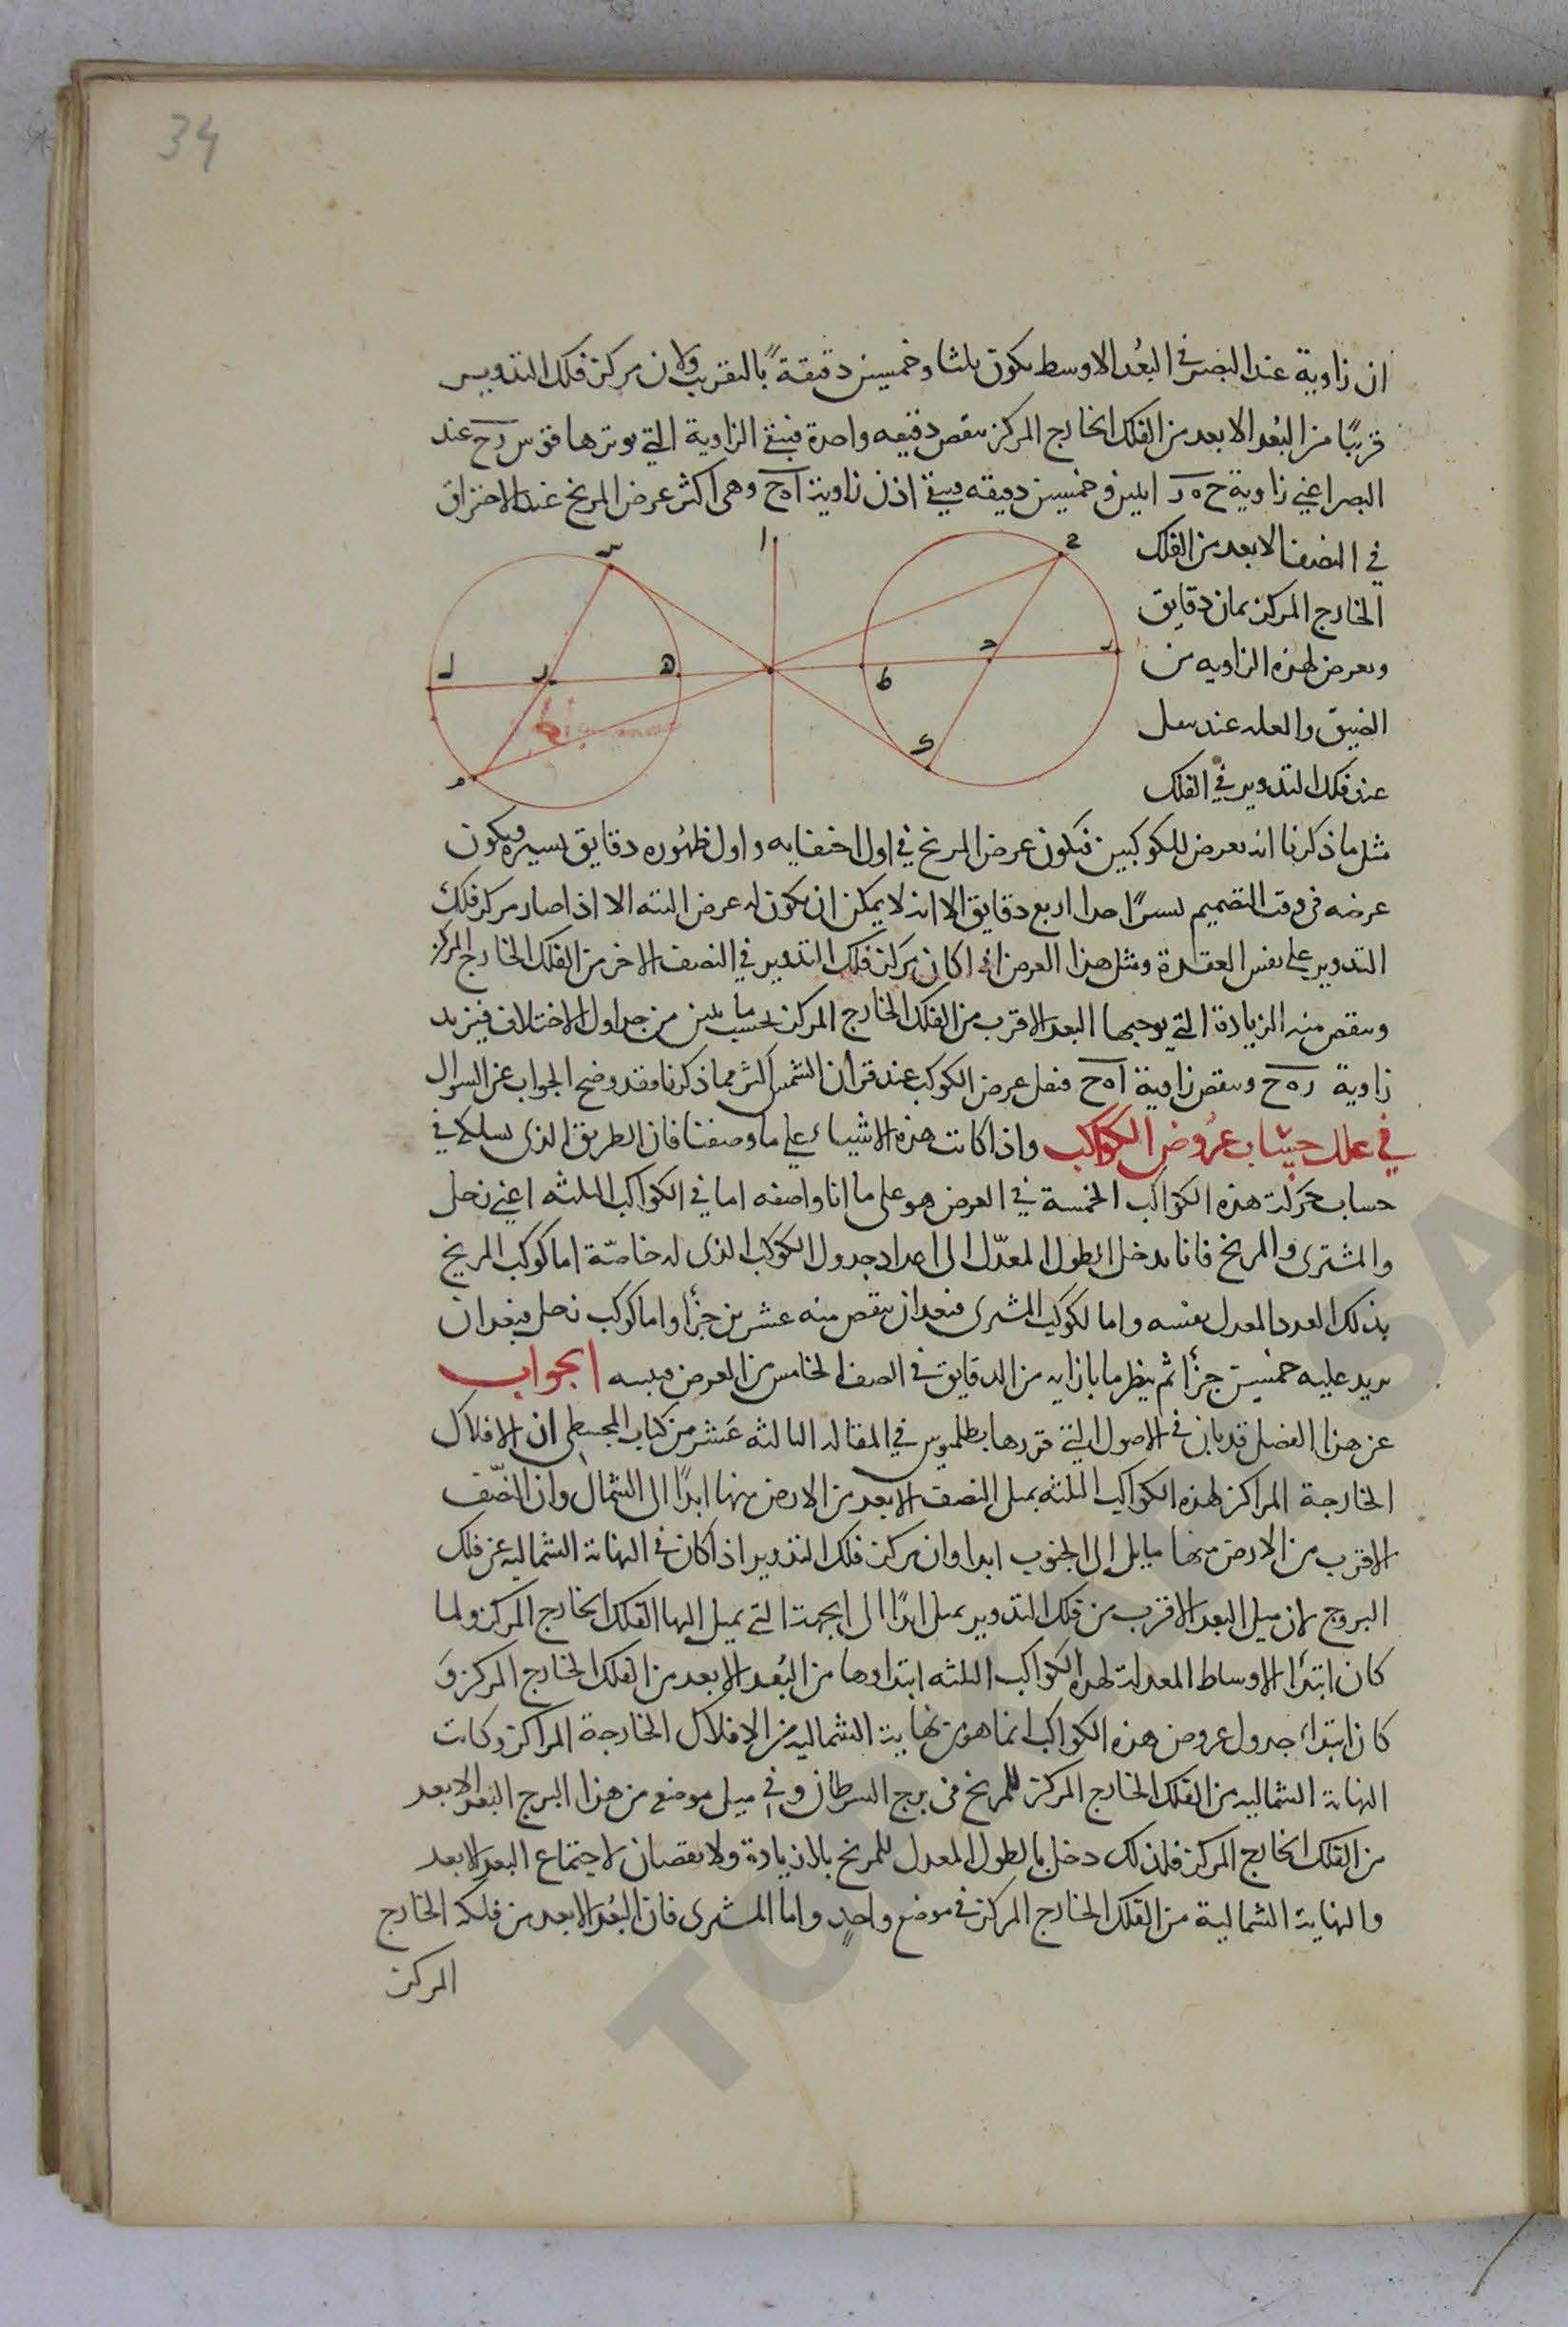 34
ان زاوية عند البصر في البُعد الاوسط يكون ثلثا وخمسين دقيقةً بالتقريب ولان مركز فلك التدوير
قريبًا من البُعد الابعد من الفلك الخارج المركز ينقص دقيقه واحدة فيبقى الزاوية التي يوترها قوس رح عند
البصر اعني زاوية ح ه ر اثنين وخمسين دقيقه فيبقى اذن زاوية اه ح وهى اكثر عرض المريخ عند الاحتراق
في النصف الابعد من الفلك
الخارج المركز ثمان دقايق
ويعرض لهذه الزاويه من
الضيق والعله عند
عند فلك التدوير في الفلك
مثل ما ذكرنا انه يعرض للكوكبين فيكون عرض المريخ في اول اختفايه واول ظهُوره دقايق يسيره ويكون
عرضه في وقت التصميم يسيرًا جدا اربع دقايق الا انه لا يمكن ان يكون له عرض البته الا اذا صار مركز فلك
التدوير على نفس العقدة ومثل هذا العرض اذا كان مركز فلك التدوير في النصف الاخر من الفلك الخارج المركز
وينقص منه الزيادة التي يوجبها البعد الاقرب من الفلك الخارج المركز بحسب ما يتبين من جداول الاختلاف فيزيد
زاوية ره ح وينقص زاوية اه ح فيقل عرض الكوكب عند قران الشمس اكثر مما ذكرنا فقد وضح الجواب عن السوال
في علل حساب عروض الكواكب واذا كانت هذه الاشياء على ما وصفنا فان الطريق الذى يسلك في
حساب حركة هذه الكواكب الخمسة في العرض هو على ما انا واصفه اما في الكواكب الثلثه اعني زحل
والمشترى والمريخ فانا ندخل الطول المعدّل الى اعداد جدول الكوكب الذى له خاصّة اما كوكب المريخ
بذلك العدد المعدل نفسه واما لكوكب المشترى فبعد ان ينقص منه عشرين جزأ واما كوكب زحل فبعد ان
يزيد عليه خمسين جزأ ثم ينظر ما بازايه من الدقايق في الصف الخامس من العرض الجواب
عن هذا الفصل قد بان في الاصول التي قررها بطلميوس في المقاله الثالثه عشر من كتاب المجسطي ان الافلاك
الخارجة المراكز لهذه الكواكب الثلثه يميل النصف الابعد من الارض منها ابدًا الى الشمال وان النصّف
الاقرب من الارض منها مايل الى الجنوب ابدا وان مركز فلك التدوير اذا كان في النهاية الشماليه عن فلك
البروج لان ميل البعد الاقرب من فلك التدوير يميل ابدًا الى الجهة التي يميل اليها الفلك الخارج المركز ولما
كان ابتدأ الاوساط المعدلة لهذه الكواكب الثلثه ابتداوها من البُعد الابعد من الفلك الخارج المركز وَ
كان ابتداء جدول عروض هذه الكواكب انما هو من نهاية الشماليه من الافلاك الخارجة المراكز وكانت
النهاية الشماليه من الفلك الخارج المركز للمريخ في برج السرطان وفي ميل موضع من هذا البرج البُعد الابعد
من الفلك الخارج المركز فلذلك دخل بالطول المعدل للمريخ بلا زيادة ولا نقصان لاجتماع البعد الابعد
والنهاية الشمالية من الفلك الخارج المركز في موضع واحدٍ واما المشترى فان البُعد الابعد من فلكه الخارج
المركز